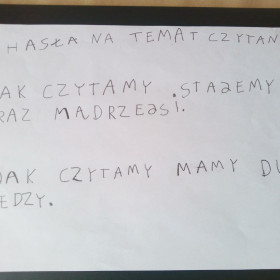 HASŁA NA TEMAT CZYTAN
JAK CZYTAMY .STAJEMY
RAZ MĄDRZEJSI.
JAK CZYTAMY MAMY DU
EDZY.